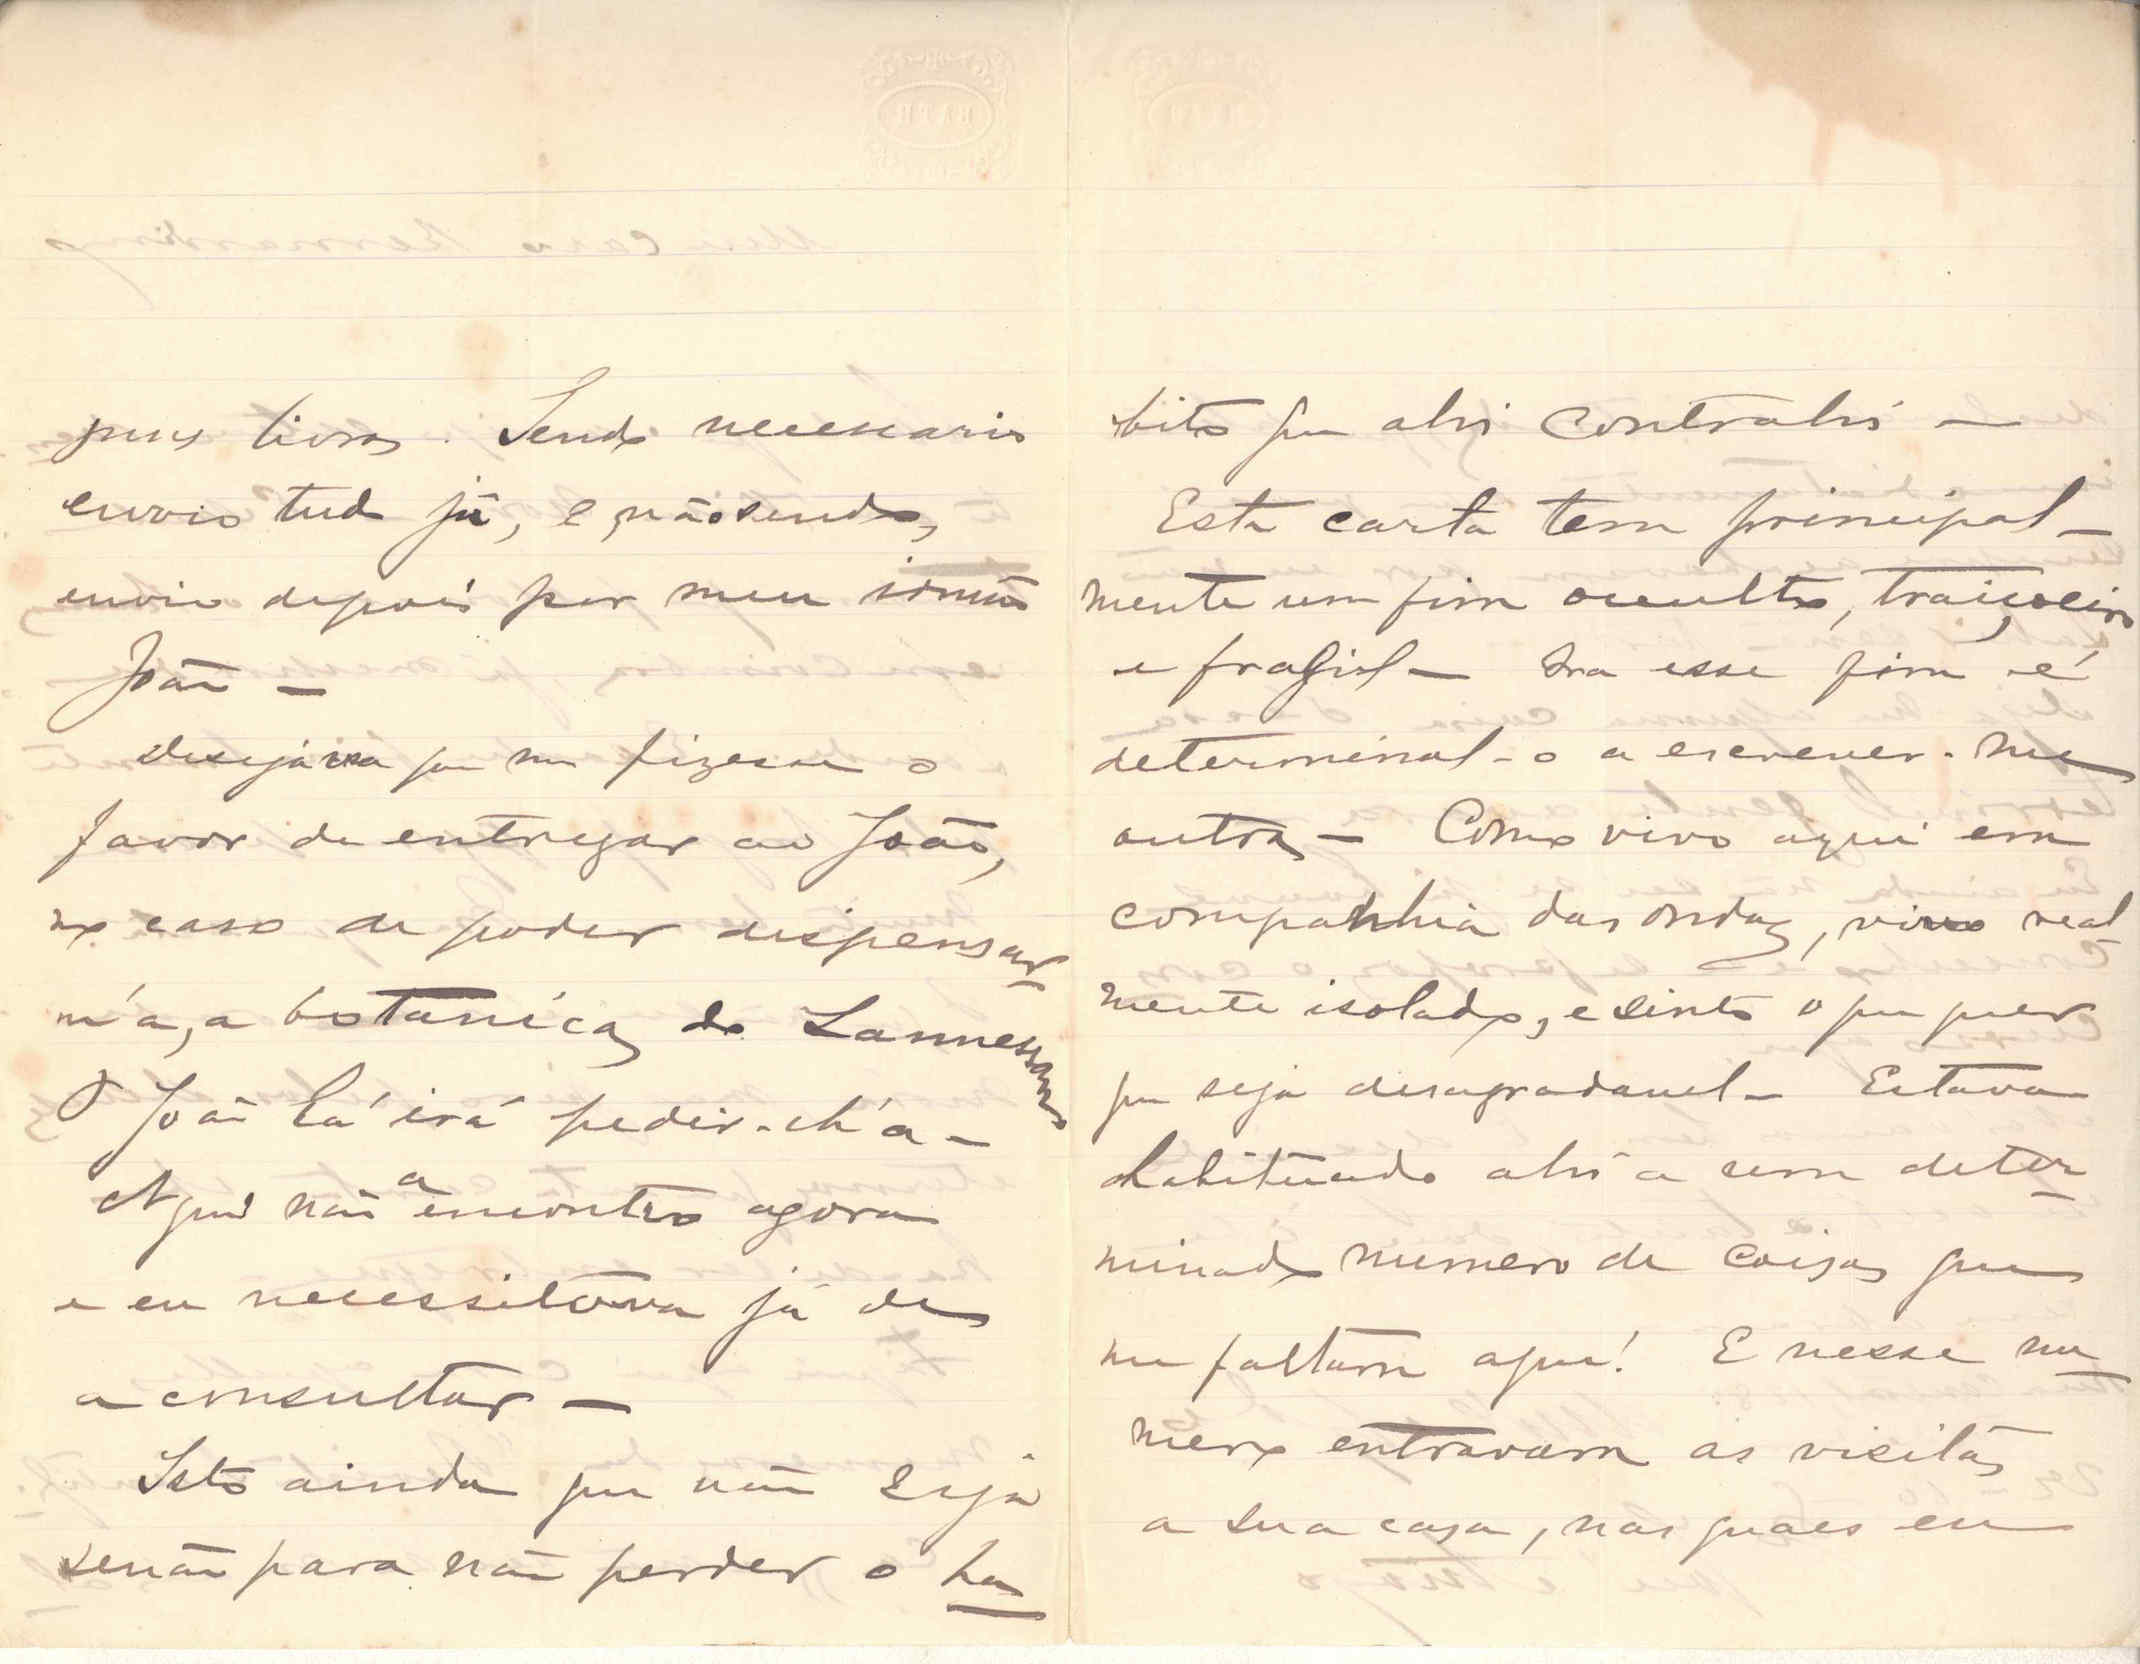 seus livros. Sendo necessario
envio tudo já, e, não sendo,
envio depois por meu irmão
João –
Desejava que me fizesse o
favor de entregar ao João,
no caso de poder dispensar
m'a, a botanica do Lannessan
O João lá irá pedir-lh'a –
Aqui não a encontro agora
e eu necessitava já de
a consultar –
Isto ainda que não seja
senão para não perder o ha
bito que ahi contrahi –
Esta carta tem principal-
mente um fim occulto, traiçoeiro
e fragil – Ora esse fim é
determinal-o a escrever-me
outra – Como vivo aqui em
companhia das ondas, vivo real
mente isolado, e sinto o que quer
que seja desagradavel – Estava
habituado ahi a um deter
minado numero de coisas que
me faltam aqui! E nesse nu
mero entravam as visitas
a sua casa, nas quaes eu
Meu caro Bernardino